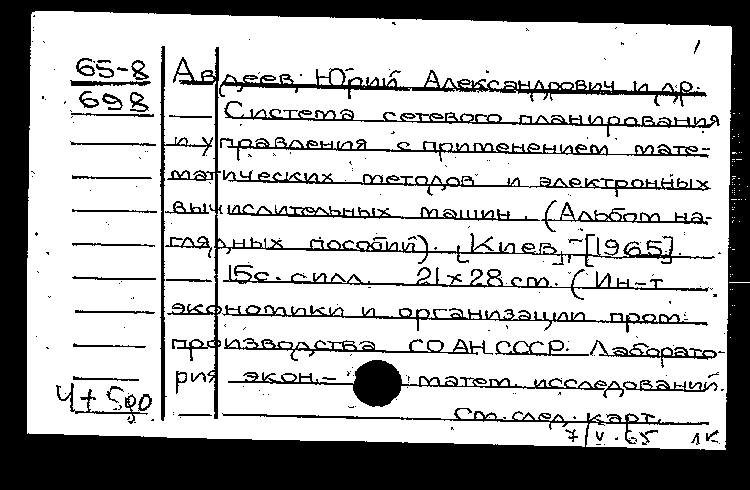 65-8 Авдеев, Юрий Александрович и др.
698 Система сетевого планирования
и управления с применением мате-
матических методов и электронных
вычислительных машин. (Альбом на-
глядных пособий). [Киев], [1965].
15с. с илл. 21×28 см. (Ин-т
экономики и организации пром.
производства СО АН СССР. Лаборато-
рия экон.- матем. исследований.
Ч+500
См. след. карт.
7/V.65 ЛК